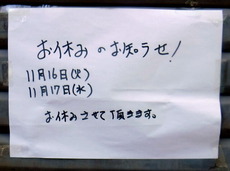 お休みのお知らせ!
11月16日(火)
11月17日(水)
お休みさせて頂きます。